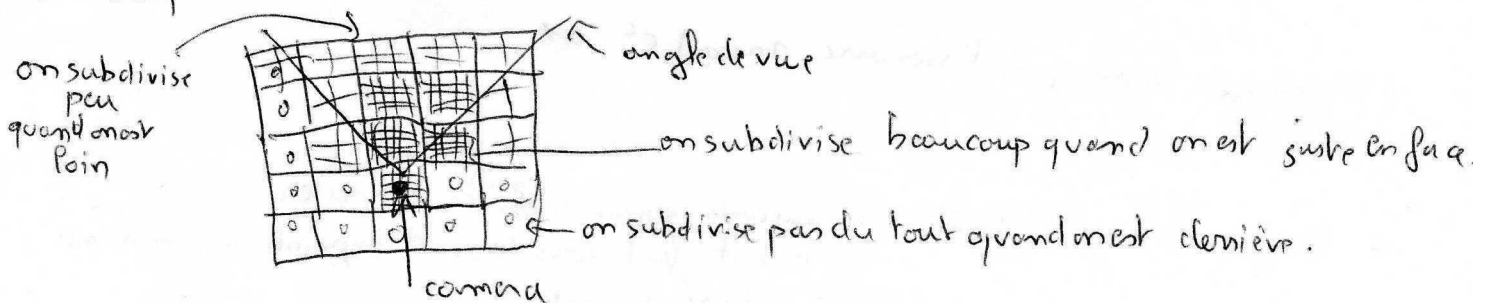 on subdivise
peu
quand on est
loin
angle de vue
on subdivise beaucoup quand on est juste en face.
on subdivise pas du tout quand on est derrière.
camera